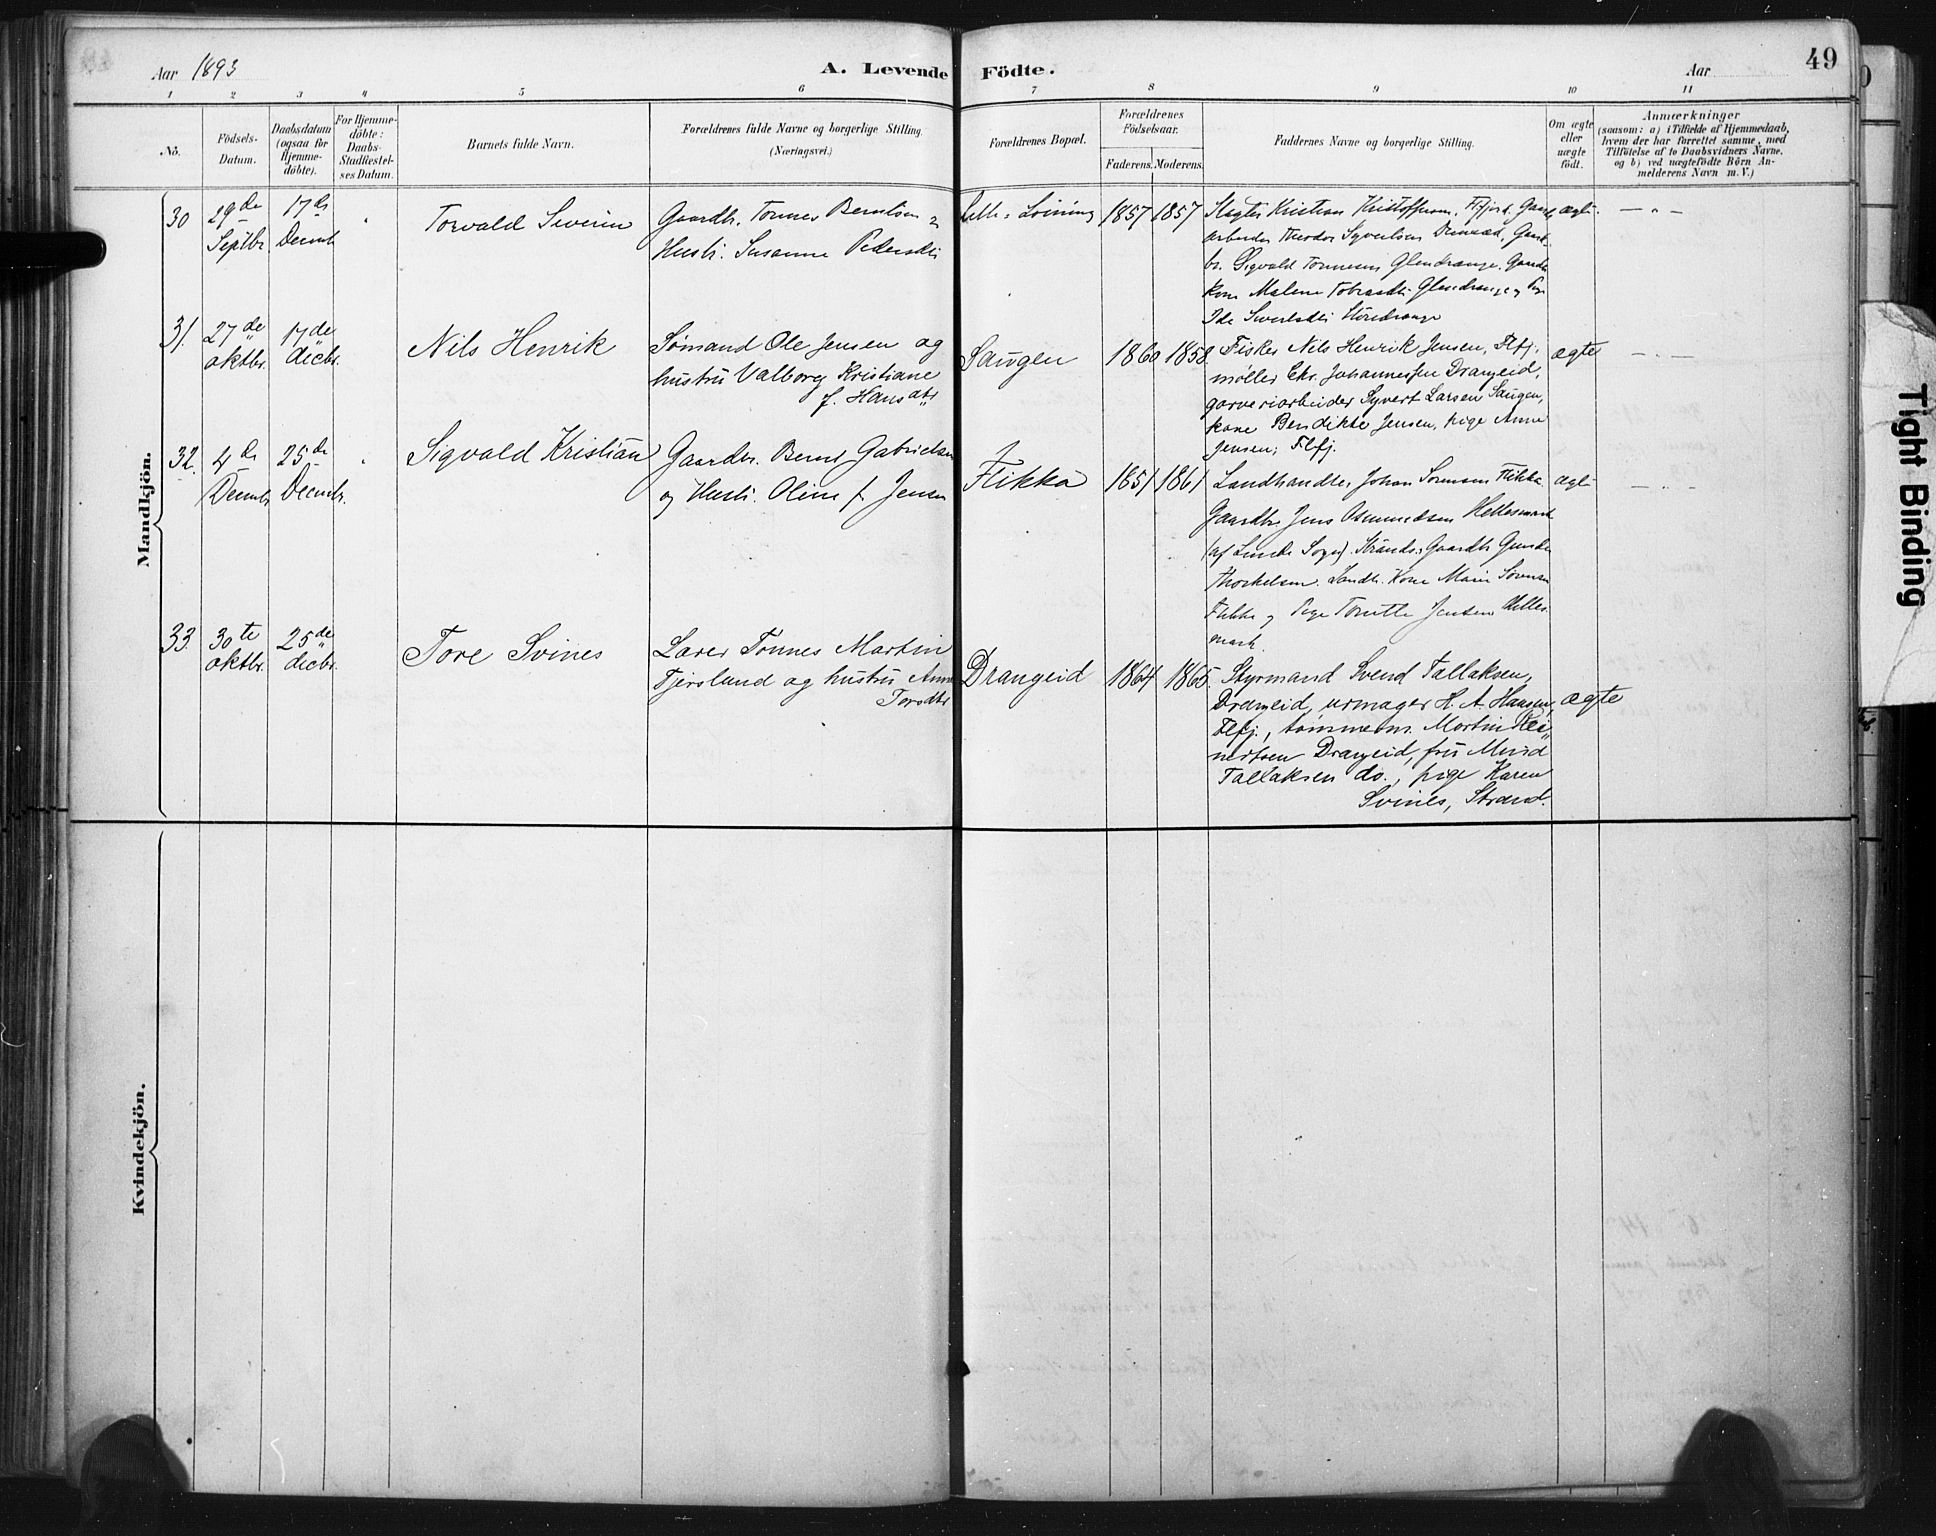 Aar 1893
A. Levende Födte.
Aar
49
1 2 3 4 5 6 7 8 9 10 11
No.
Födsels-
Datum.
Daabsdatum
(ogsaa for
Hjemme-
döbte).
For Hjemme-
döbte:
Daabs-
Stadfæstel-
ses Datum.
Barnets fulde Navn.
Forældrenes fulde Navne og borgerlige Stilling.
(Næringsvei.)
Forældrenes Bopæl.
Forældrenes
Födselsaar.
Faderens. Moderens.
Faddernes Navne og borgerlige Stilling.
Om ægte
eller
uægte
født.
Anmærkninger
(saasom: a) i Tilfælde af Hjemmedaab,
hvem der har forrettet samme, med
Tilföielse af to Daabsvidners Navne,
og b) ved uægtefödte Börn An-
melderens Navn m. V.)
Mandkjön.
30
29de
Septbr.
17de
Decemb
Torvald Severin
Gaardbr. Tønnes Berntsen
Hustr. Susanne Pedersdtr
1857 1857
Slagter Kristian Kristoffersen, Flfjord, Gaard
arbeider Theodor Syvertsen
br. Sigvald Tønnesen Glendrange, Gaardb
kone Malene Glendrange, Pige
Ide
ægte
31.
27de
oktbr.
17de
decbr.
Nils Henrik
Sømand Ole Jensen og
hustru Valborg Kristiane
f. Hansdtr
Saugen
1860 1858.
Fisker Nils Henrik Jensen, Flfj.
møller Chr. Johannessen Drangeid,
garveriarbeider Syvert Larsen Saugen,
kone Bendikte Jensen, pige Anne
Jensen, Flfj.
ægte
32.
4de
Decembr
25de
Decembr.
Sigvald Kristian
Gaardbr. Bernt Gabrielsen
og Hustr. Oline f. Jensen
Flikka
1851 1861
Landhandler Johan Sørensen Flikka
Gaardbr. Jens Osmundsen Hellesmark
(af Lunde Sogn). Gaardbr Gunder
Thorkelsen. Landh. Kone Marie Sørensen
Flikka og Pige Tomette Jensen Helles
mark.
ægte
33.
30te
oktbr.
25de
decbr.
Tore Svines
Lærer Tønnes Martin
Tjersland og hustru Anne
Torsdtr
Drangeid
1864 1865.
Styrmand Svend Tallaksen,
Drangeid, urmager H. A. Hansen,
Flfj., tømmerm. Martin Rei-
nertsen Drangeid, fru
Tallaksen do., pige Karen
Svines, Strand.
ægte
Kvindekjön.
Tight Binding